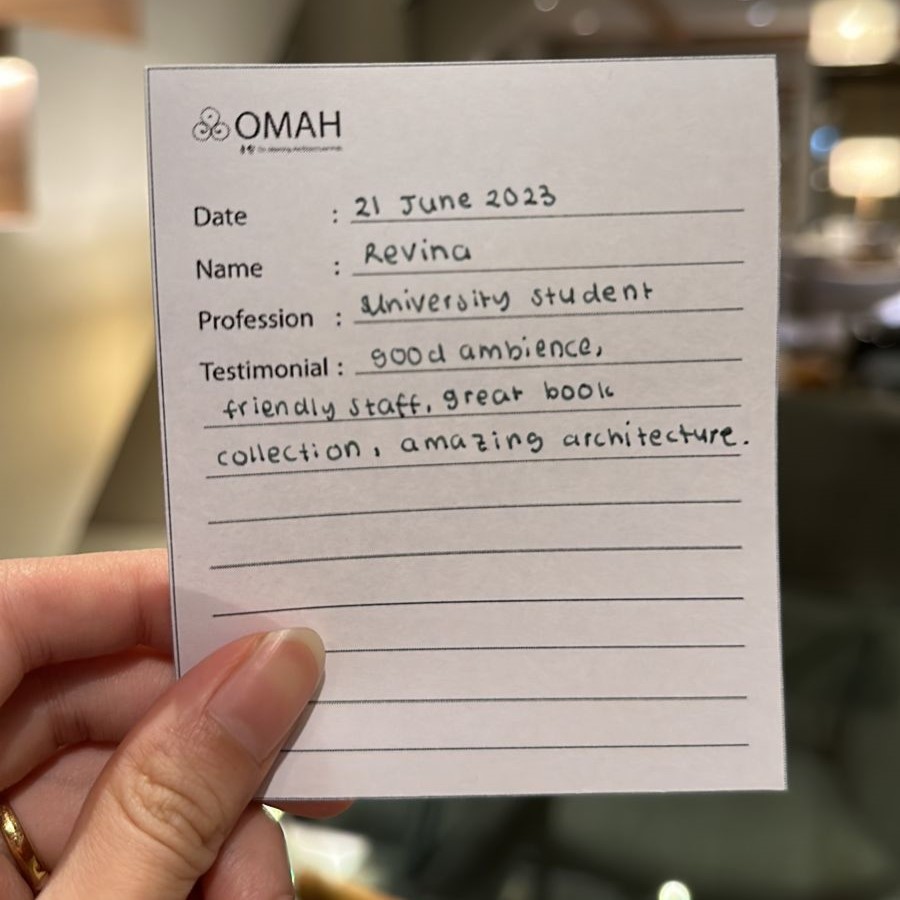 OMAH
Date : 21 June 2023
Name : Revina
Profession : University student
Testimonial : good ambience,
friendly staff, great book
collection, amazing architecture.